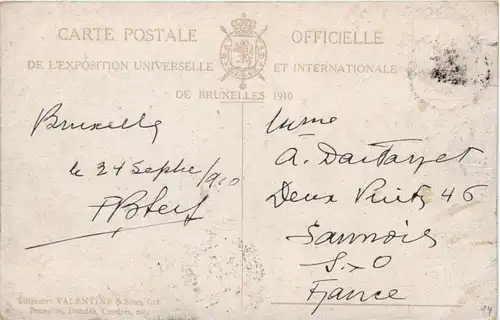 CARTE POSTALE OFFICIELLE
DE L'EXPOSITION UNIVERSELLE ET INTERNATIONALE
DE BRUXELLES 1910
Bruxelles
le 24 Septbre/910
Mme
A.
Deux Puits 46
Sannois
S.xO
France
Editeurs: VALENTINE & Sons, Ltd
Bruxelles, Dundée, Londres, etc.
14